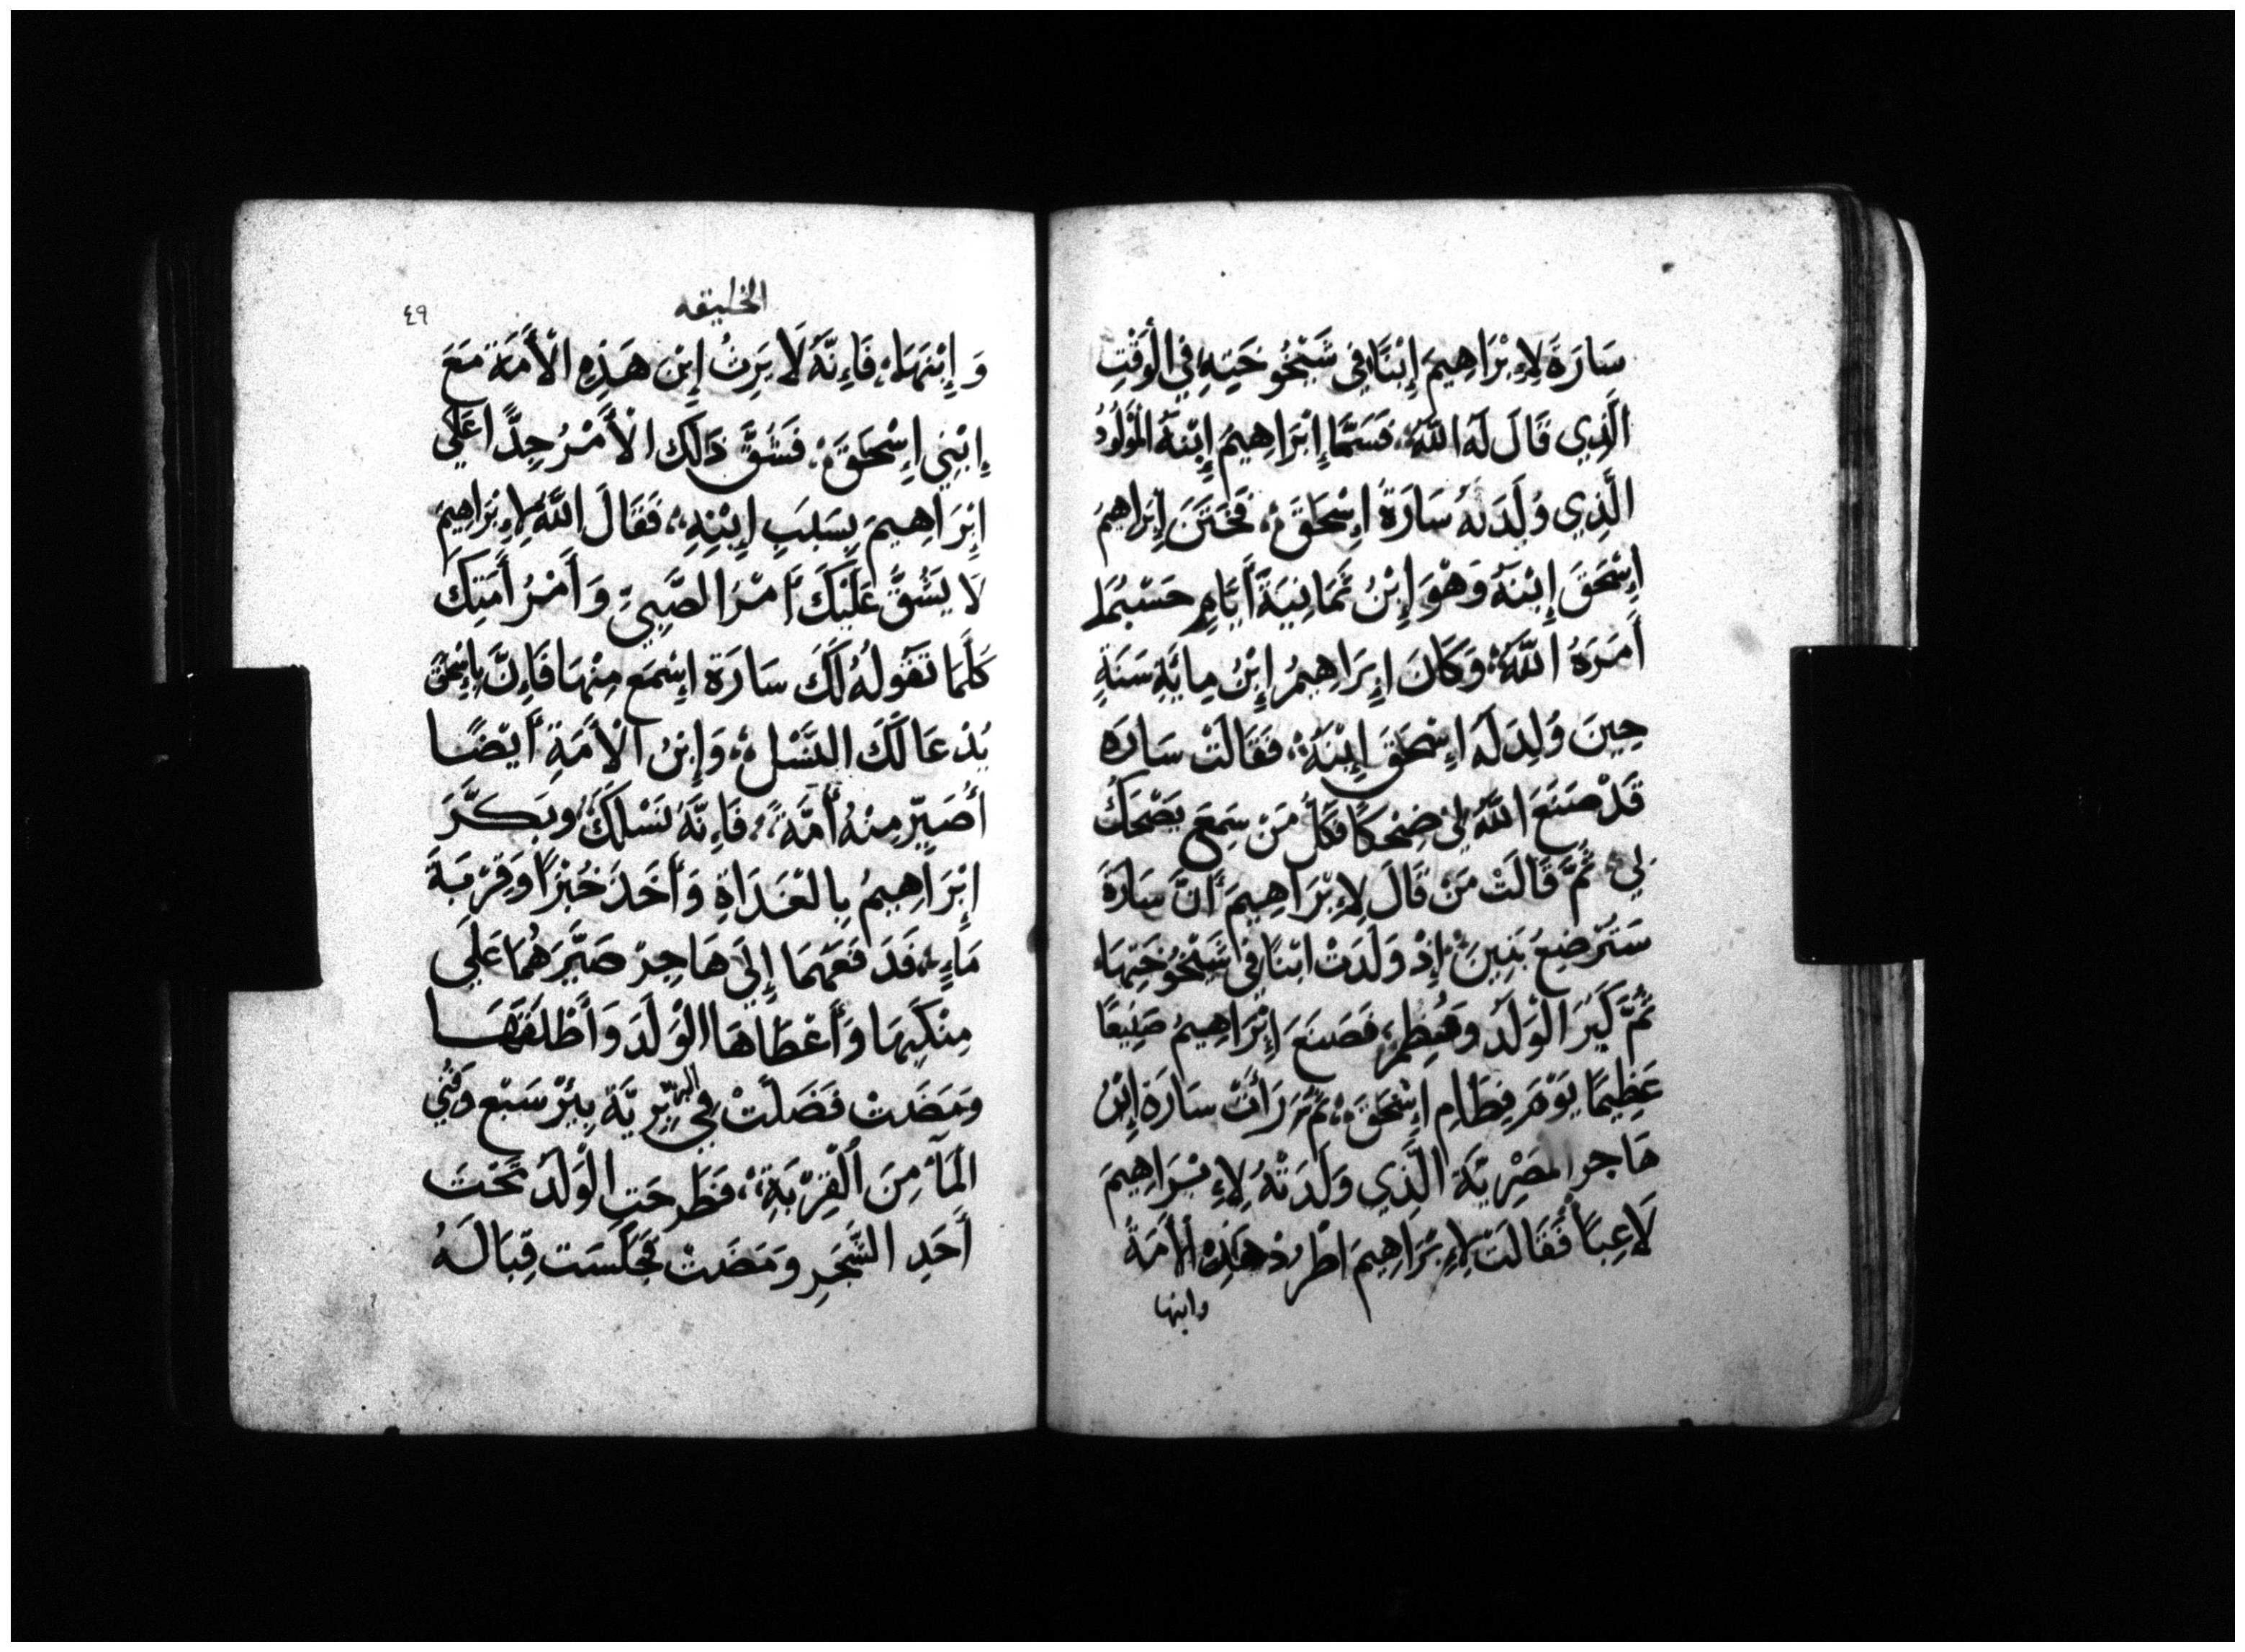 سَارَةَ لِإِبْرَاهِيمَ إِبْنًا فِي شَيْخُوخَتِهِ فِي الْوَقْتِ
الَّذِي قَالَ لَهُ اللَّهُ، فَسَمَّا إِبْرَاهِيمُ إِبْنَهُ الْمَوْلُودُ
الَّذِي وُلِدَتْهُ سَارَةُ إِسْحَقَ، فَخَتَنَ إِبْرَاهِيمُ
إِسْحَقَ إِبْنَهُ وَهْوَ إِبْنُ ثَمَانِيَةَ أَيَّامٍ حَسْبَمَا
أَمَرَهُ اللَّهُ، وَكَانَ إِبْرَاهِيمُ إِبْنُ مِايَةِ سَنَةٍ
حِينَ وُلِدَ لَهُ إِسْحَقَ إِبْنَهُ، فَقَالَتْ سَارَه
قَدْ صَنَعَ اللَّهُ لِيَ ضِحْكًا فَكُلُّ مَنْ سَمِعَ يَضْحَكُ
لِي، ثُمَّ قَالَتْ مَنْ قَالَ لِإِبْرَاهِيمَ أَنَّ سَارَةَ
سَتُرْضِعُ بَنِينَ، إِذْ وَلَدَتْ ابْنًا فِي شَيْخُوخَتِهَا،
ثُمَّ كَبُرَ الْوَلَدُ وَفُطِمَ، فَصَنَعَ إِبْرَاهِيمُ صَنِيعًا
عَظِيمًا يَوْمَ فِطَامِ إِسْحَقَ، ثُمَّ رَأَتْ سَارَة إِبْنُ
هَاجر الْمَصْرِيَّةَ الَّذِي وَلَدَتْهُ لِإِبْرَاهِيمَ
لَاعِبًا فَقَالَتْ لِإِبْرَاهِيمَ اطْرُدْ هَذِهِ الْأَمَةَ
وابنها
الخليقه
٤٩
وَإِبْنَهَا، فَإِنَّهُ لَا يَرِثُ إِبْن هَذِهِ الْأَمَةَ مَعَ
إِبْنِي إِسْحَقَ، فَشَقَّ ذَلِكَ الْأَمْرُ جِدًّا عَلَي
إِبْرَاهِيمَ بِسَبَبِ إِبْنِهِ، فَقَالَ اللَّهُ لِإِبْرَاهِيمَ
لَا يَشُقَّ عَلَيْكَ أَمْرَ الصَّبِيِّ وَأَمْرُ أَمَتِكَ
كَلَّمَا تَقُولُهُ لَكَ سَارَة إِسْمَع مِنْهَا فَإِنَّ بِإِسْحَقَ
يُدْعَا لَكَ النَّسْلُ، وَإِبْنُ الْأَمَةِ أَيْضًا
أُصَيِّرُ مِنْهُ أُمَّةً، فَإِنَّهُ نَسْلَكَ، وبَكَّرَ
إِبْرَاهِيمُ بِالْغَدَاةِ وَأَخَذَ خُبْزًا وَقِرْبَةَ
مَاءٍ، فَدَفَعَهَمَا إِلَي هَاجِرْ صَيَّرَهُمَا عَلَي
مِنْكَبِهَا وَأَعْطَاهَا الْوَلَدَ وَأَطْلَقَهَا
وَمَضَتْ فَضَلَّتْ فِي البَرِيَّة بِيْرْ سَبْع وَفَنِي
الْمَآءُ مِنَ الْقِرْبَةِ، فَطَرَحَتِ الْوَلَدَ تَحْتَ
أَحَدِ الشَّجَرِ وَمَضَتْ فَجَلَسَت قِبَالَهُ